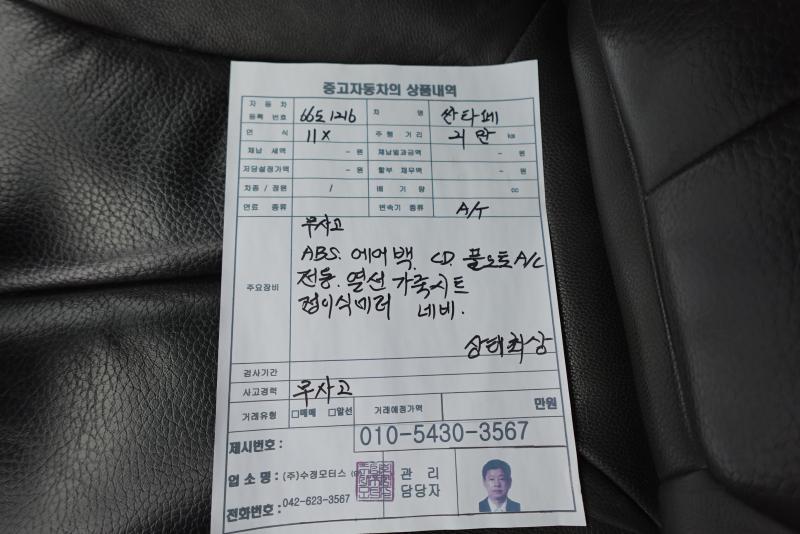 중고자동차의 상품내역
자동차 등록 번호 66도1216 차 명 싼타페
연 식 11X 주행 거리 기만 km
체납 세액 - 원 체납범과금액 - 원
저당설정가액 - 원 할부 채무액 - 원
차종 / 정원 / 배 기 량 cc
연료 종류 변속기 종류 A/T
주요장비
무사고
ABS. 에어백. CD. 풀오토A/C
전동. 열선 가죽시트
접이식미러 네비.
상태최상
검사기간
사고경력 무사고
거래유형 □매매 □알선 거래예정가액 만원
제시번호 : 010-5430-3567
업 소 명 : (주)수정모터스 관 리
담당자
전화번호 : 042-623-3567